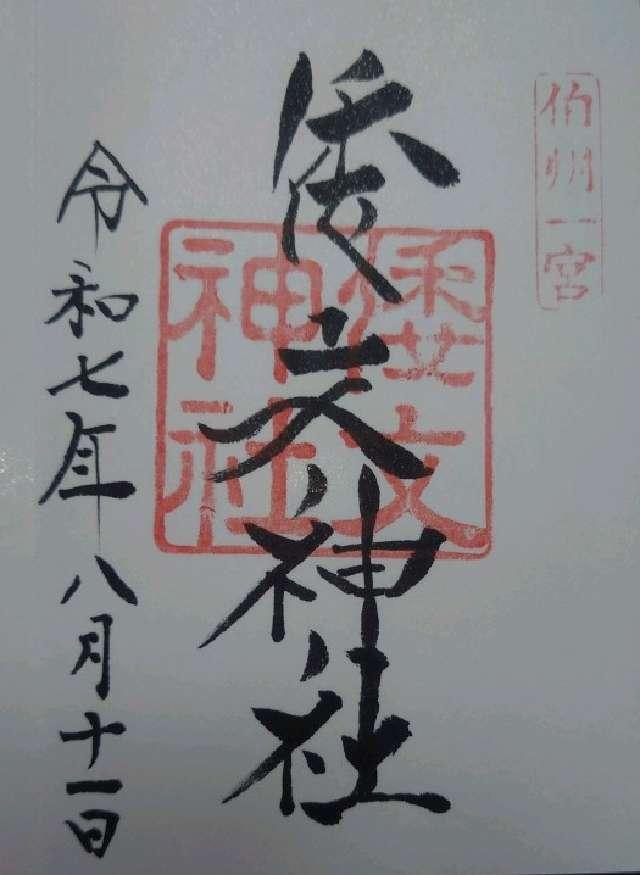 伯州一宮
倭文神社
倭文神社
令和七年八月十一日